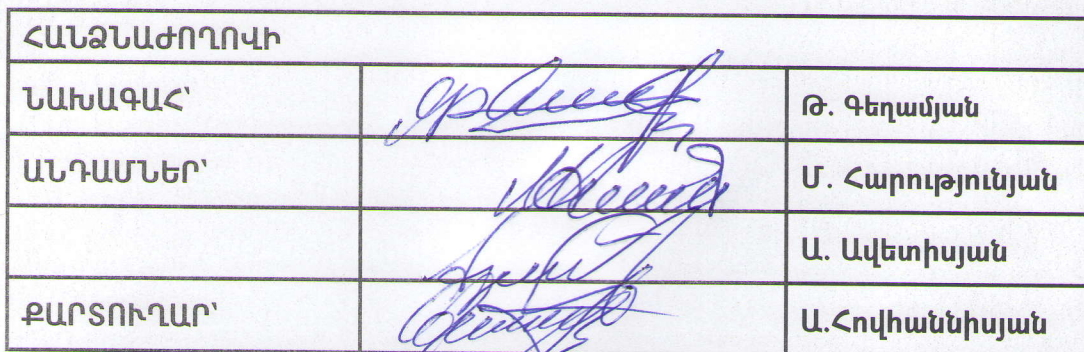 ՀԱՆՁՆԱԺՈՂՈՎԻ
ՆԱԽԱԳԱՀ՝ Թ. Գեղամյան
ԱՆԴԱՄՆԵՐ՝ Մ. Հարությունյան
Ա. Ավետիսյան
ՔԱՐՏՈՒՂԱՐ՝ Ա.Հովհաննիսյան